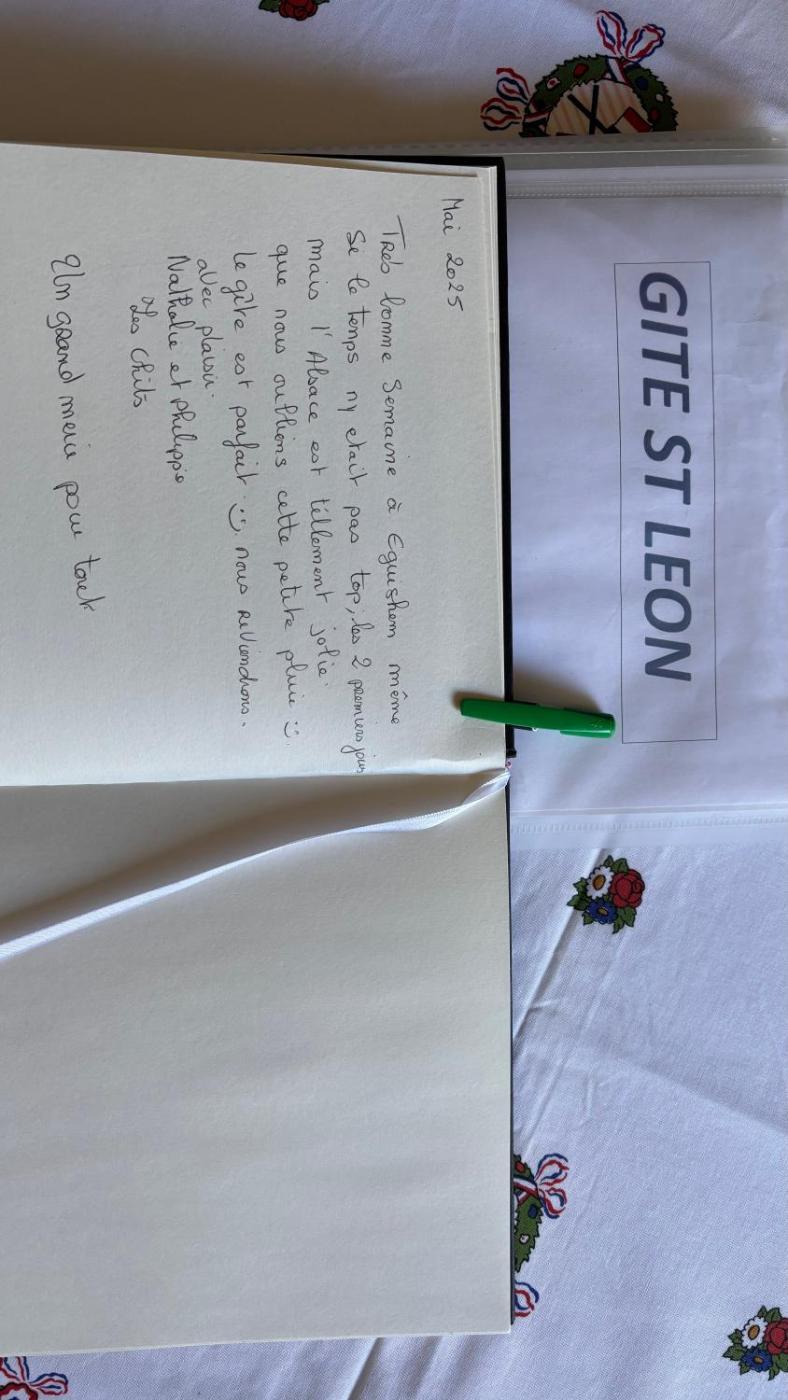 GITE ST LEON
Mai 2025
Très bonne Semaine à Eguishem même
Si le temps n'y etait pas top, les 2 premiers jours
mais l'Alsace est tellement jolie.
que nous oublions cette petite pluie :).
Le gîte est parfait :). nous reviendrons.
avec plaisir.
Nathalie et philippe
Les Chits
Un grand merci pour tout